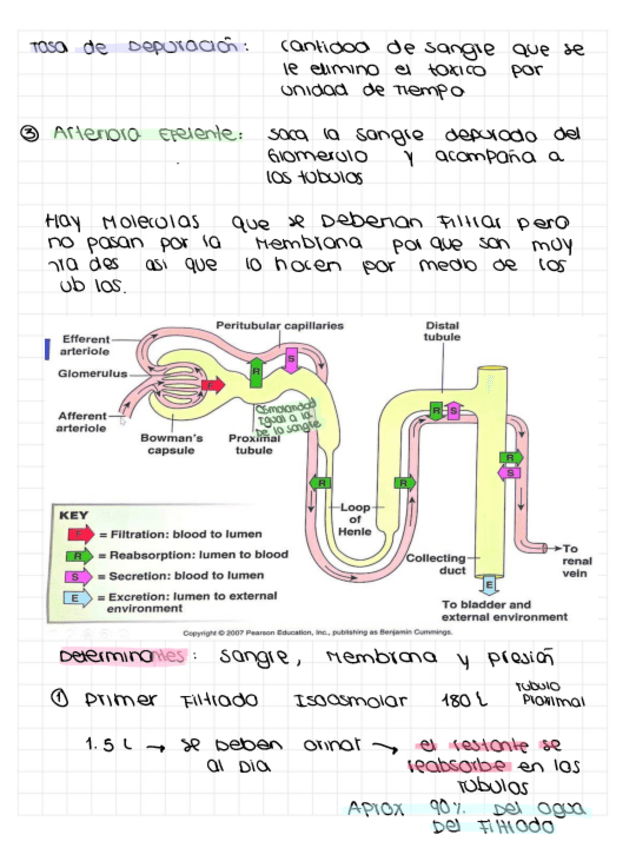 Tasa de Depuración: cantidad de sangre que se
le elimino el toxico por
unidad de tiempo
③ Arteriora Eferente: saca la sangre depurada del
Glomerulo y acompaña a
los tubulos
Hay Moleculas que se Deberian Filtrar pero
no pasan por la Membrana por que son muy
des asi que lo hacen por medio de los
Peritubular capillaries
Distal
tubule
Efferent
arteriole
Glomerulus
Afferent
arteriole
Bowman's
capsule
Proximal
tubule
F
R
S
Osmolaridad
Igual a la
De la sangre
R
R
R
S
R
S
Loop
of
Henle
Collecting
duct
To
renal
vein
E
To bladder and
external environment
KEY
F = Filtration: blood to lumen
R = Reabsorption: lumen to blood
S = Secretion: blood to lumen
E = Excretion: lumen to external
environment
Copyright © 2007 Pearson Education, Inc., publishing as Benjamin Cummings.
Determinantes: Sangre, Membrana y presión
① Primer Filtrado Isoosmolar 180 L Tubulo
Proximal
1.5 L → se Deben orinar → el restante se
al Dia reabsorbe en los
Tubulos
Aprox 90% Del agua
Del Filtrado